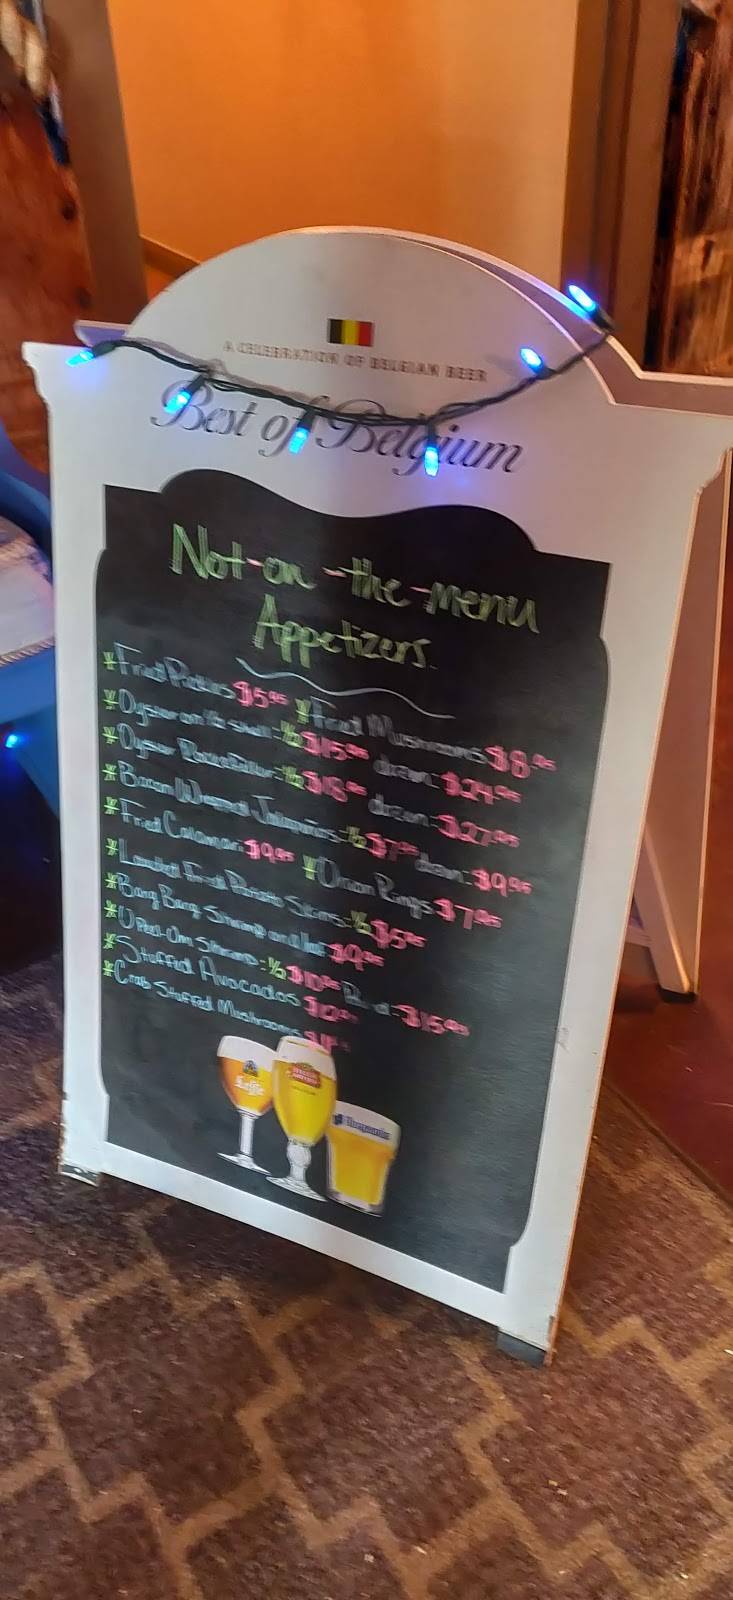 A CELEBRATION OF BELGIAN BEER
Best of Belgium
Not-on-the-menu
Appetizers
*Fried Pickles $5.95 *Fried Mushrooms $8.95
*Oyster on ½ shell: ½ $15.95 dozen: $24.95
*Oyster Rockefeller: ½ $18.95 dozen: $27.95
*Bacon Wrapped Jalapeños: ½ $7.95 dozen: $9.95
*Fried Calamari: $9.95 *Onion Rings: $7.95
*Loaded Fried Potato Skins: ½ $5.95
*Bang Bang Shrimp $9.95
*U Peel-Em Shrimp: ½ $10.95 Pound: $15.95
*Stuffed Avocados $12
*Crab Stuffed Mushrooms
Leffe
STELLA ARTOIS
Hoegaarden